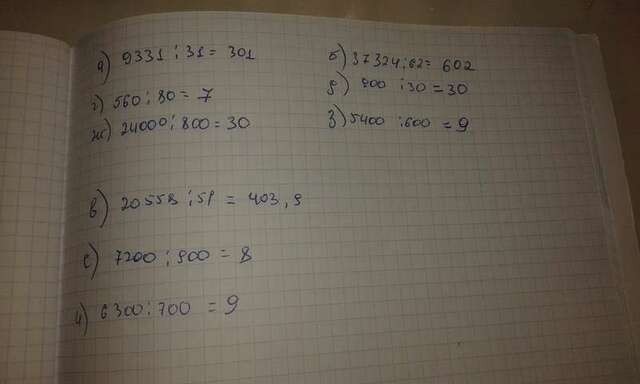 а) 9331 : 31 = 301 б) 37324 : 62 = 602
г) 560 : 80 = 7 д) 900 : 30 = 30
ж) 24000 : 800 = 30 з) 5400 : 600 = 9
в) 20 558 : 51 = 403,9
е) 7200 : 900 = 8
и) 6300 : 700 = 9